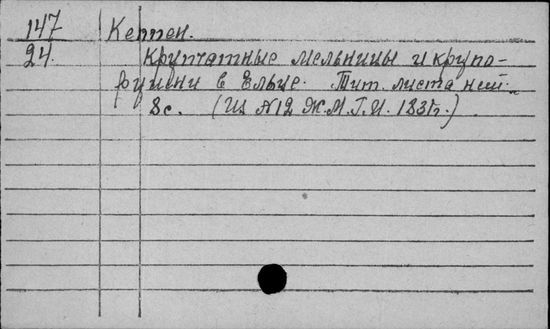 147 Кеппен.
24. Крупчатные мельницы и крупо-
рушни в Ельце. Тит. листа нет.
8с. (Из N12 Ж.М.Г.И. 183